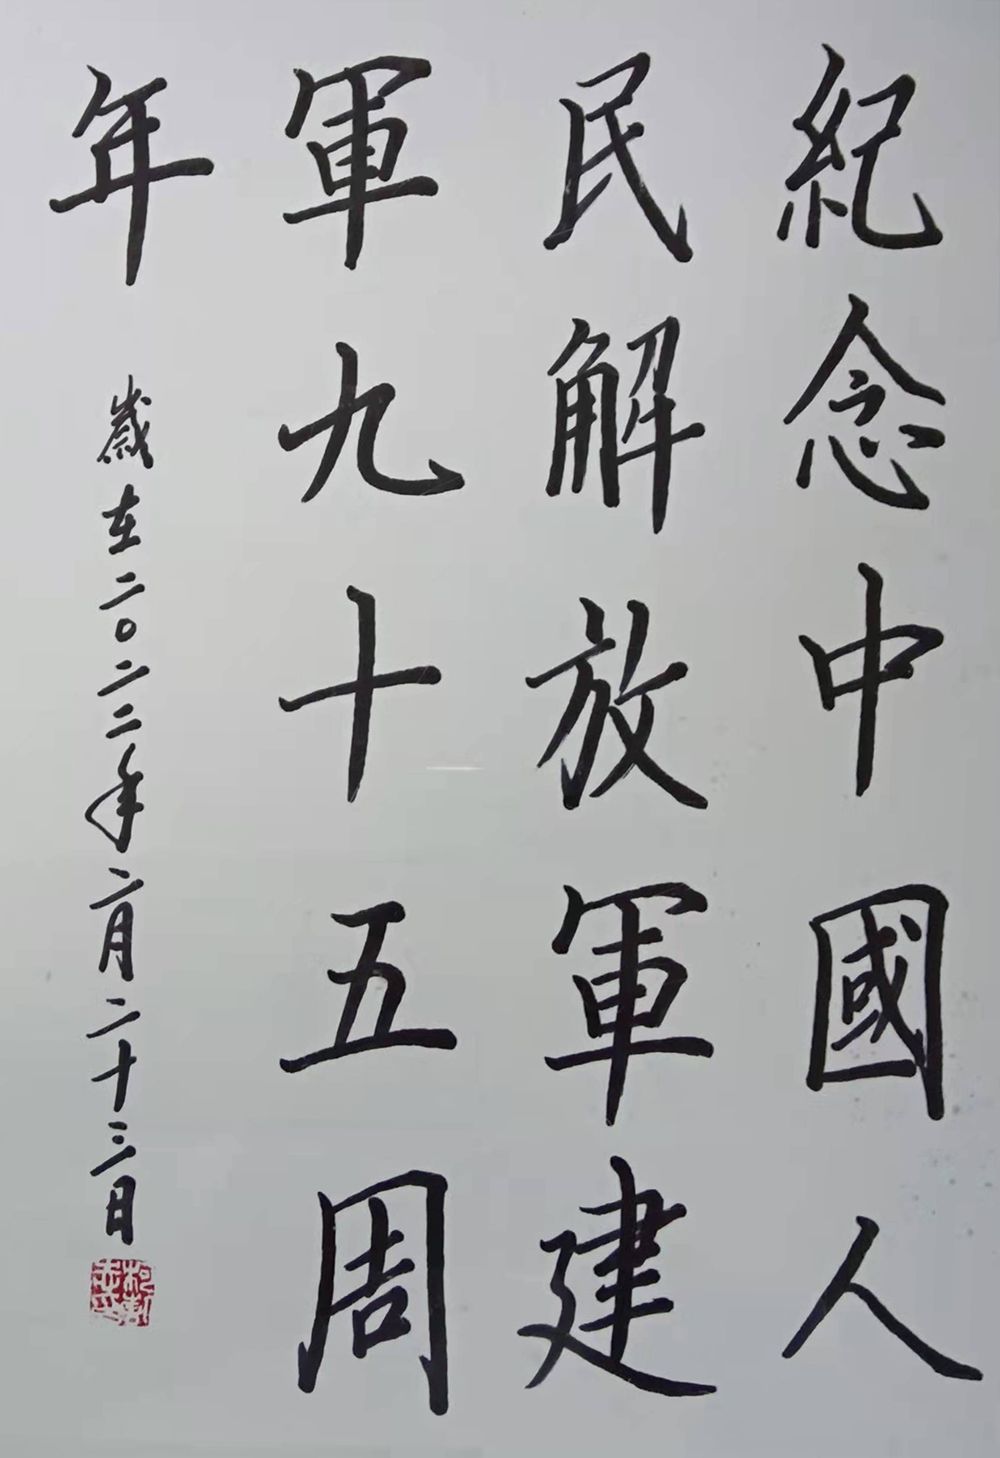 紀念中國人
民解放軍建
軍九十五周
年
歲在二〇二二年六月二十三日